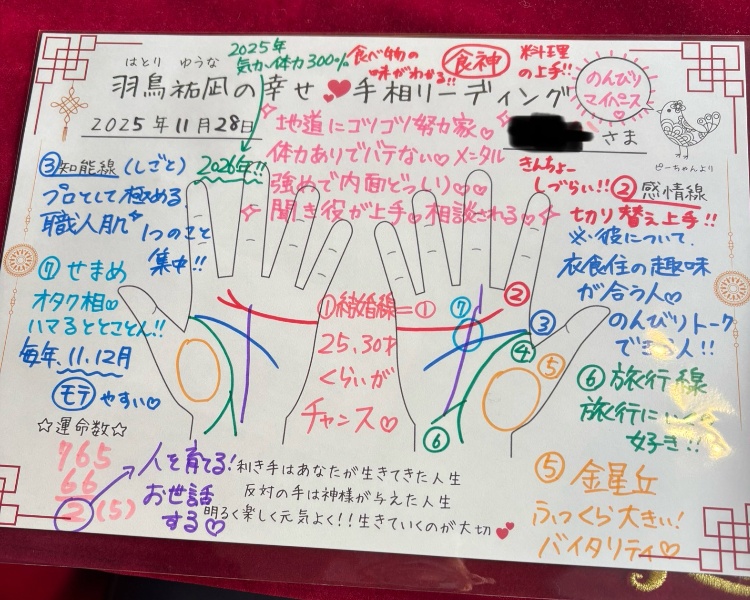 はとり ゆうな
羽鳥祐凪の幸せ❤手相リーディング
2025年11月28日
さま
2025年
気力、体力300%
2026年!!
食べ物の
味がわかる!!
食神
料理
の上手!!
のんびり
マイペース
ぴーちゃんより
地道にコツコツ努力家♡
体力ありでバテない♡メンタル
強めで内面どっしり♡♡
聞き役が上手♡相談される♡
きんちょー
しづらい!!
③知能線(しごと)
プロとして極める
職人肌
1つのこと
集中!!
⑦せまめ
オタク相♡
ハマるととことん!!
毎年、11、12月
モテやすい♡
☆運命数☆
765
66
2(5)
人を育てる!
お世話
する♡
①結婚線=①
25、30才
くらいが
チャンス♡
⑦
②
③
④
⑤
⑥
②感情線
切り替え上手!!
※彼について
衣食住の趣味
が合う人♡
のんびりトーク
人!!
⑥旅行線
旅行に
好き!!
⑤金星丘
ふっくら大きい!
バイタリティ♡
利き手はあなたが生きてきた人生
反対の手は神様が与えた人生
明るく楽しく元気よく!!生きていくのが大切💕